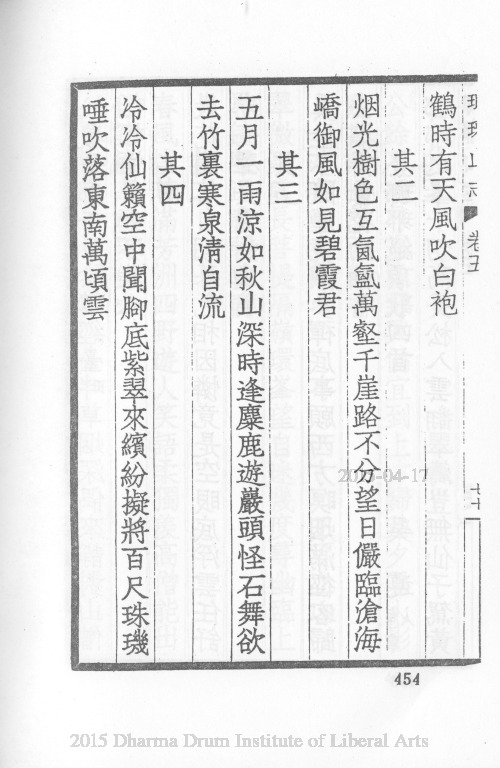 琅琊山志 卷五
鶴時有天風吹白袍
其二
烟光樹色互氤氳萬壑千崖路不分望日儼臨滄海
嶠御風如見碧霞君
其三
五月一雨涼如秋山深時逢麋鹿遊巖頭怪石舞欲
去竹裏寒泉清自流
其四
泠泠仙籟空中聞腳底紫翠來繽紛擬將百尺珠璣
唾吹落東南萬頃雲
454
2015 Dharma Drum Institute of Liberal Arts